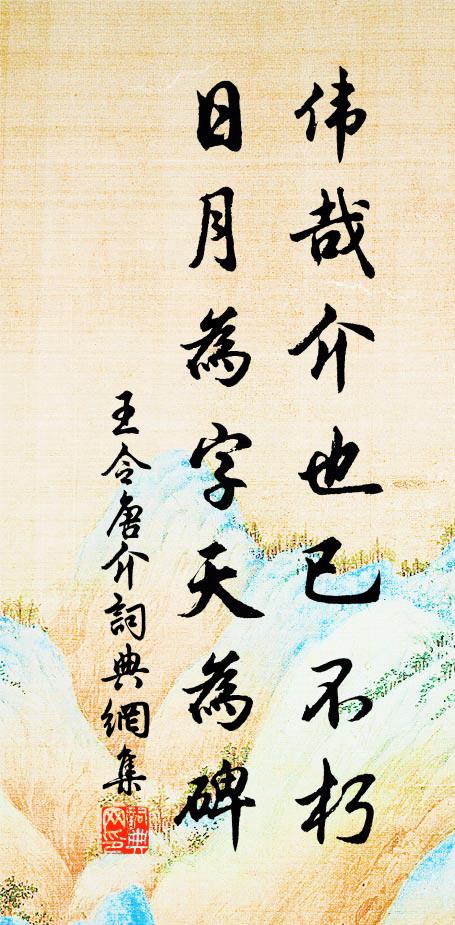 伟哉介也已不朽
日月為字天為碑
王令唐介詞典網集
詞典